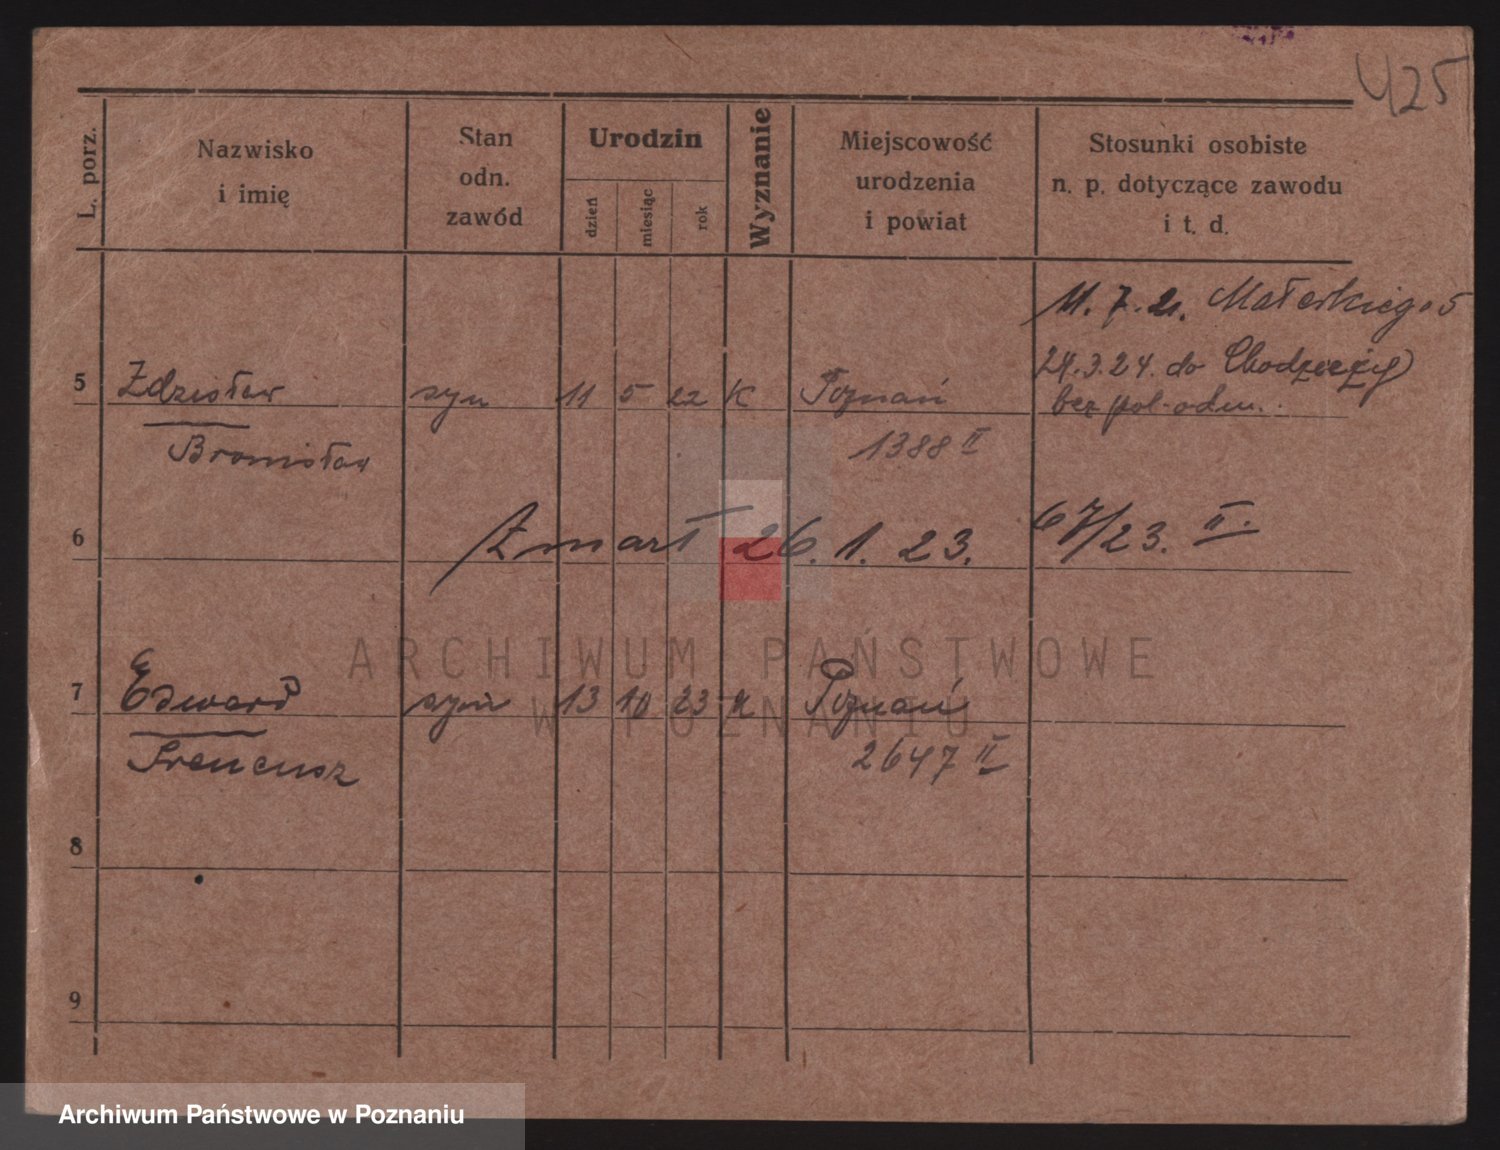 425
L. porz.
Nazwisko
i imię
Stan
odn.
zawód
Urodzin
dzień
miesiąc
rok
Wyznanie
Miejscowość
urodzenia
i powiat
Stosunki osobiste
n. p. dotyczące zawodu
i t. d.
11. 7. 21. Małeckiego 5
24.3.24. do Chodzieży
bez pol. odm.
5 Zdzisław syn 11 5 22 K Poznań
Bronisław 1388 II
6 Zmarł 26. 1. 23. 67/23. II.
7 Edward syn 13 10 23 K Poznań
Ireneusz 2647 II
8
9
ARCHIWUM PAŃSTWOWE
W POZNANIU
Archiwum Państwowe w Poznaniu